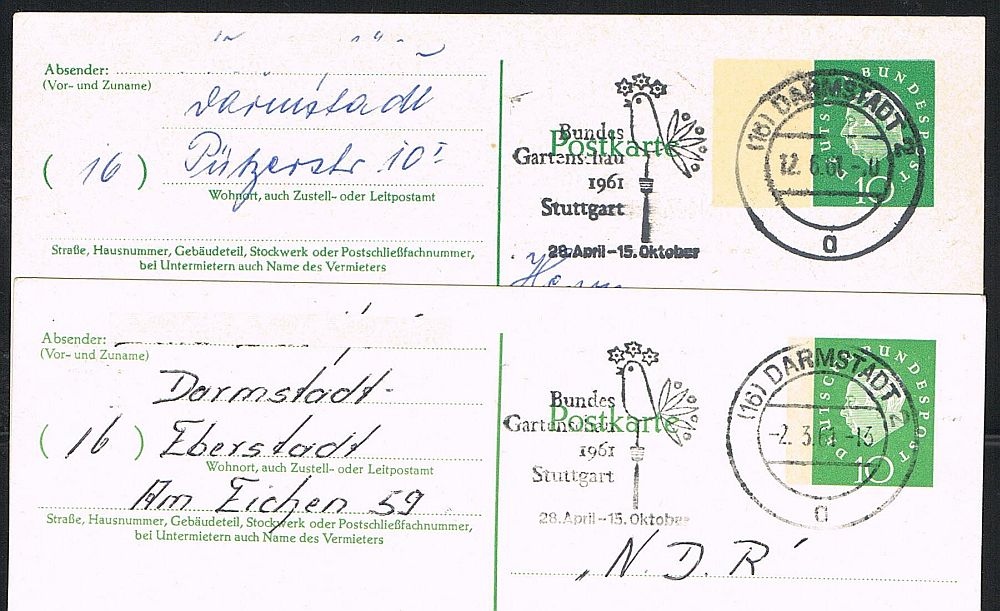 Absender:
(Vor- und Zuname)
Darmstadt
(16) Pützerstr 10 I
Wohnort, auch Zustell- oder Leitpostamt
Straße, Hausnummer, Gebäudeteil, Stockwerk oder Postschließfachnummer,
bei Untermietern auch Name des Vermieters
Postkarte
Bundes
Gartenschau
1961
Stuttgart
28.April-15.Oktober
DEUTSCHE BUNDESPOST
10
(16) DARMSTADT 2
12.6.61
a
Absender:
(Vor- und Zuname)
Darmstadt-
(16) Eberstadt
Wohnort, auch Zustell- oder Leitpostamt
Am Eichen 59
Straße, Hausnummer, Gebäudeteil, Stockwerk oder Postschließfachnummer,
bei Untermietern auch Name des Vermieters
Postkarte
Bundes
Gartenschau
1961
Stuttgart
28.April-15.Oktober
DEUTSCHE BUNDESPOST
10
(16) DARMSTADT 2
-2.3.61-13
a
"N.D.R"